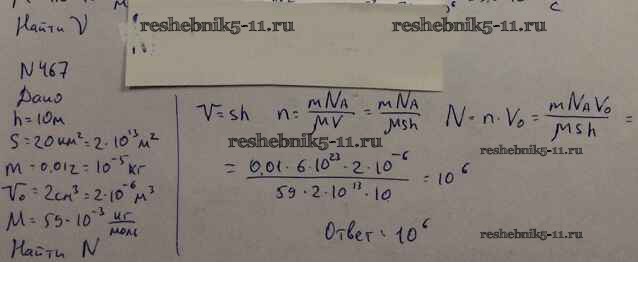 Найти V
reshebnik5-11.ru
reshebnik5-11.ru
N467
Дано
h=10м
S=20км²=2·10¹³м²
m=0,01г=10⁻⁵кг
V₀=2см³=2·10⁻⁶м³
M=59·10⁻³ кг/моль
Найти N
V=sh n= mNA/MV = mNA/Msh N=n·V₀= mNAV₀/Msh =
reshebnik5-11.ru
reshebnik5-11.ru
= 0,01·6·10²³·2·10⁻⁶ / 59·2·10¹³·10 = 10⁶
Ответ: 10⁶
reshebnik5-11.ru